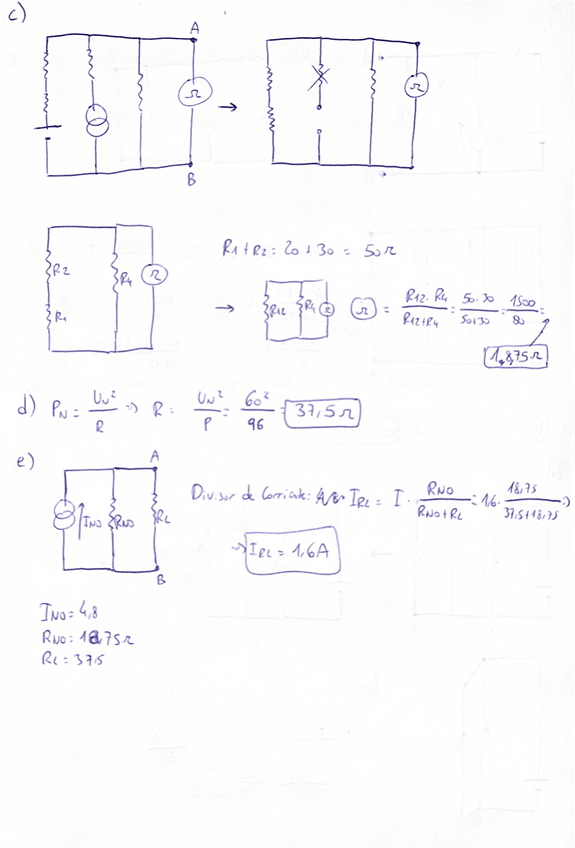 c)
A
Ω
→
Ω
B
R2
R4
Ω
R1
R1 + R2 = 20 + 30 = 50Ω
→
R12
R4
Ω
Ω = R12 · R4 / R12 + R4 = 50 · 30 / 50 + 30 = 1500 / 80 =
18,75 Ω
d) PN = UN² / R => R = UN² / P = 60² / 96 = 37,5 Ω
e)
A
INO
RNO
RL
B
Divisor de Corriente: IRL = I · RNO / RNO + RL = 1,6 · 18,75 / 37,5 + 18,75 =>
=> IRL = 1,6 A
INO = 4,8
RNO = 18,75Ω
RL = 37,5